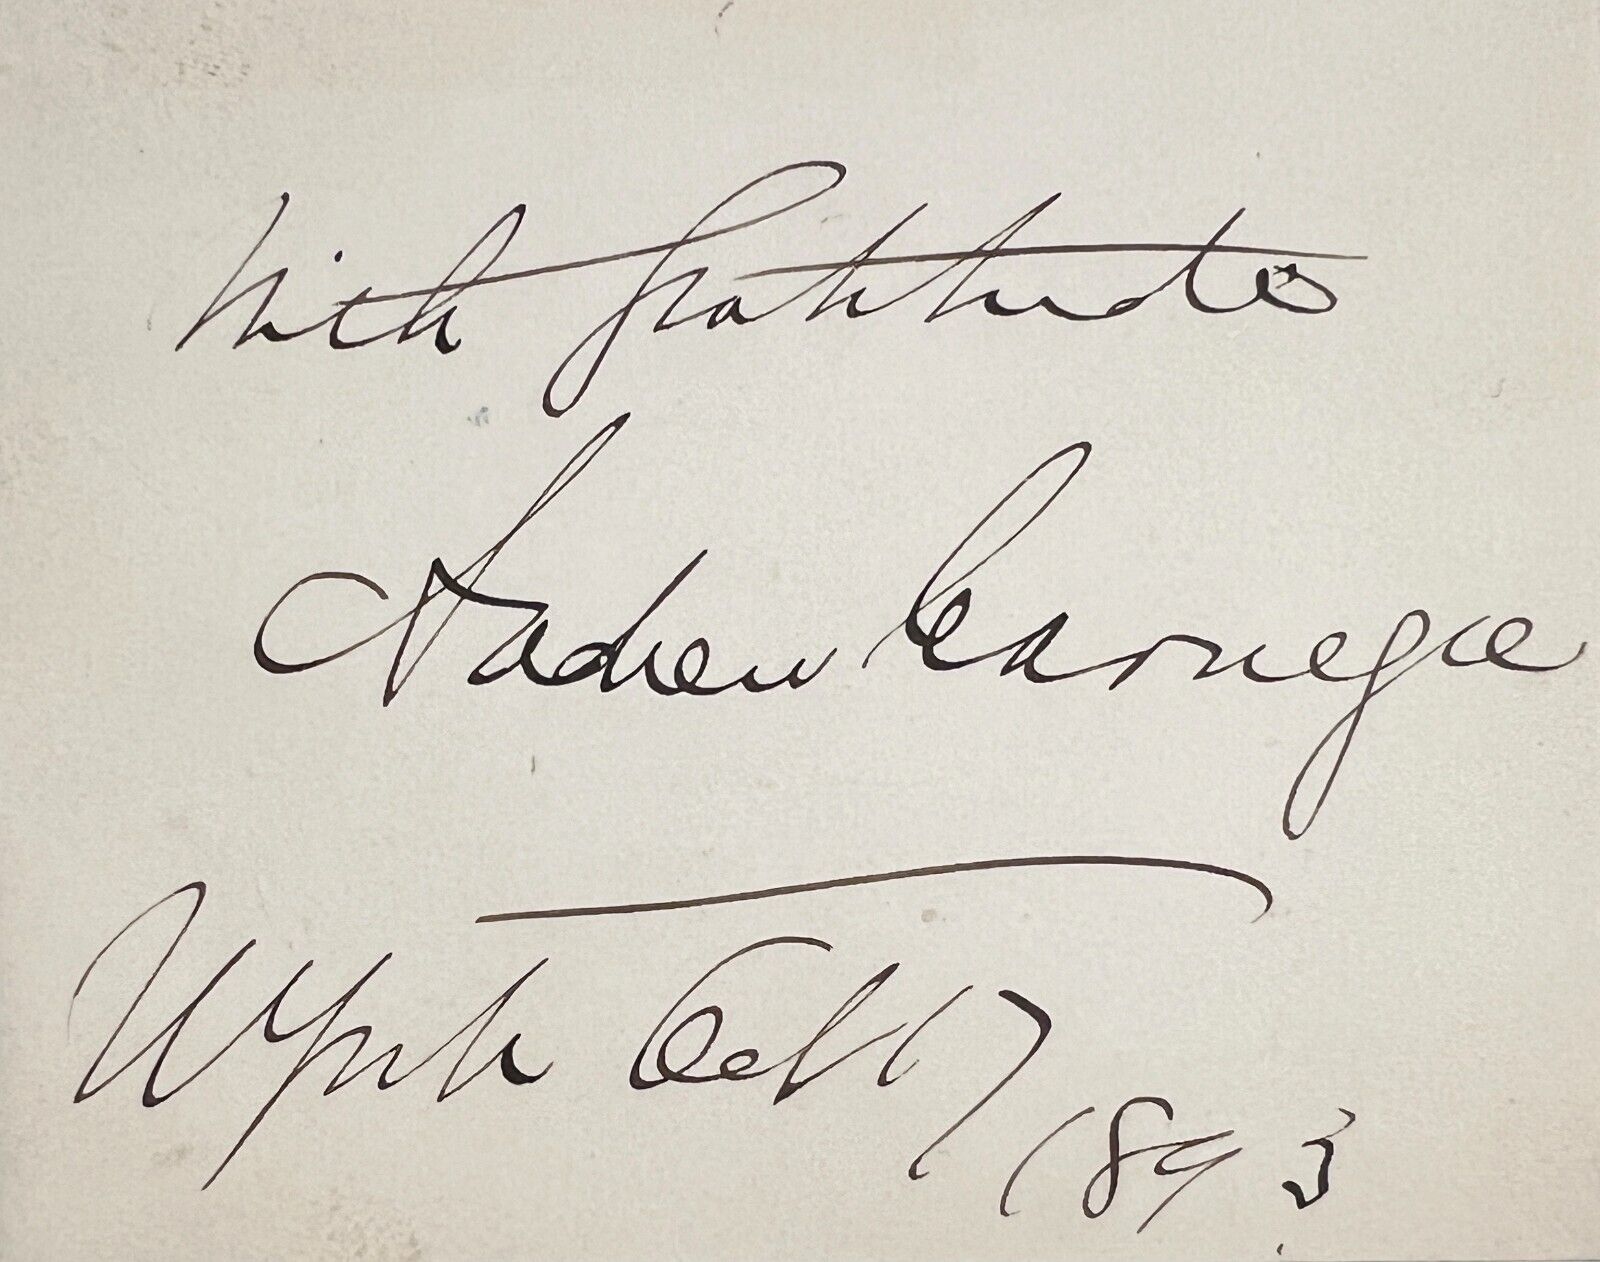 With Gratitude
Andrew Carnegie
Oct 17
1893